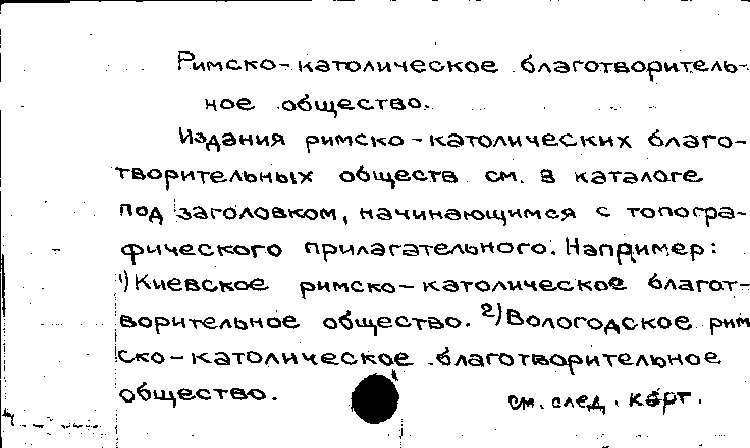 Римско-католическое благотворитель-
ное общество.
Издания римско-католических благо-
творительных обществ см. в каталоге
под заголовком, начинающимся с топогра-
фического прилагательного. Например:
1) Киевское римско-католическое благот-
ворительное общество. 2) Вологодское рим
ско-католическое благотворительное
общество.
см. след. карт.